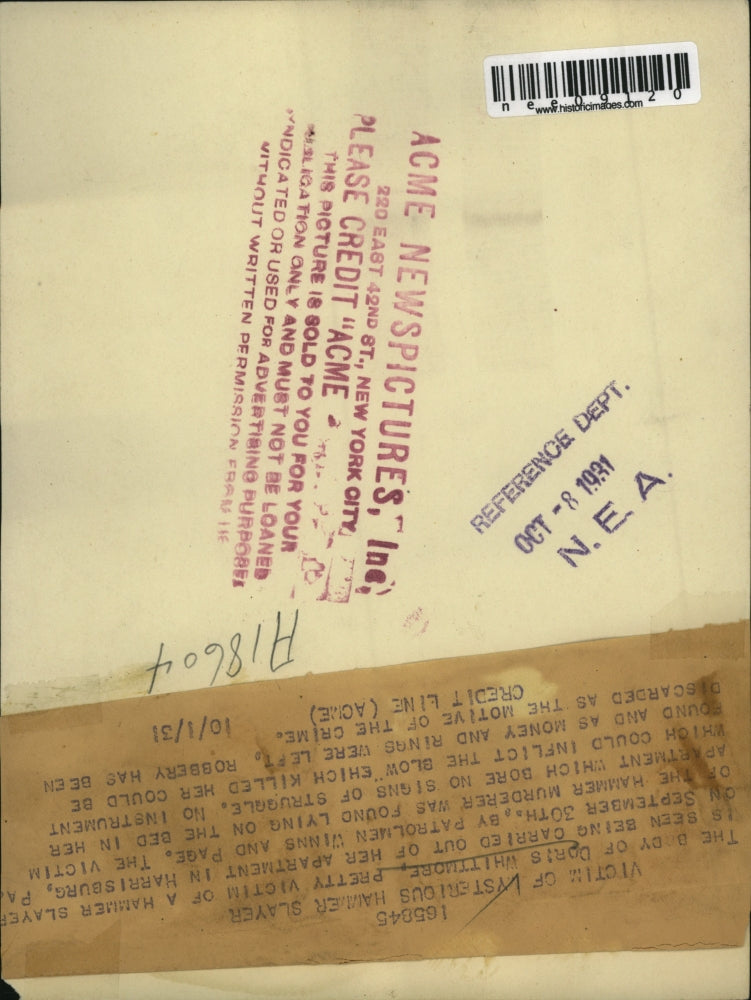 nee09120
www.historicimages.com
ACME NEWSPICTURES, Inc.
220 EAST 42ND ST., NEW YORK CITY
PLEASE CREDIT "ACME
THIS PICTURE IS SOLD TO YOU FOR YOUR
PUBLICATION ONLY AND MUST NOT BE LOANED
SYNDICATED OR USED FOR ADVERTISING PURPOSES
WITHOUT WRITTEN PERMISSION FROM US
REFERENCE DEPT.
OCT - 8 1931
N. E. A.
A18604
165845
VICTIM OF MYSTERIOUS HAMMER SLAYER
THE BODY OF DORIS WHITTMORE, PRETTY VICTIM OF A HAMMER SLAYER
IS SEEN BEING CARRIED OUT OF HER APARTMENT IN HARRISBURG, PA.
ON SEPTEMBER 30TH., BY PATROLMEN WINNS AND PAGE. THE VICTIM
OF THE HAMMER MURDERER WAS FOUND LYING ON THE BED IN HER
APARTMENT WHICH BORE NO SIGNS OF STRUGGLE. NO INSTRUMENT
WHICH COULD INFLICT THE BLOW WHICH KILLED HER COULD BE
FOUND AND AS MONEY AND RINGS WERE LEFT, ROBBERY HAS BEEN
DISCARDED AS THE MOTIVE OF THE CRIME.
CREDIT LINE (ACME) 10/1/31